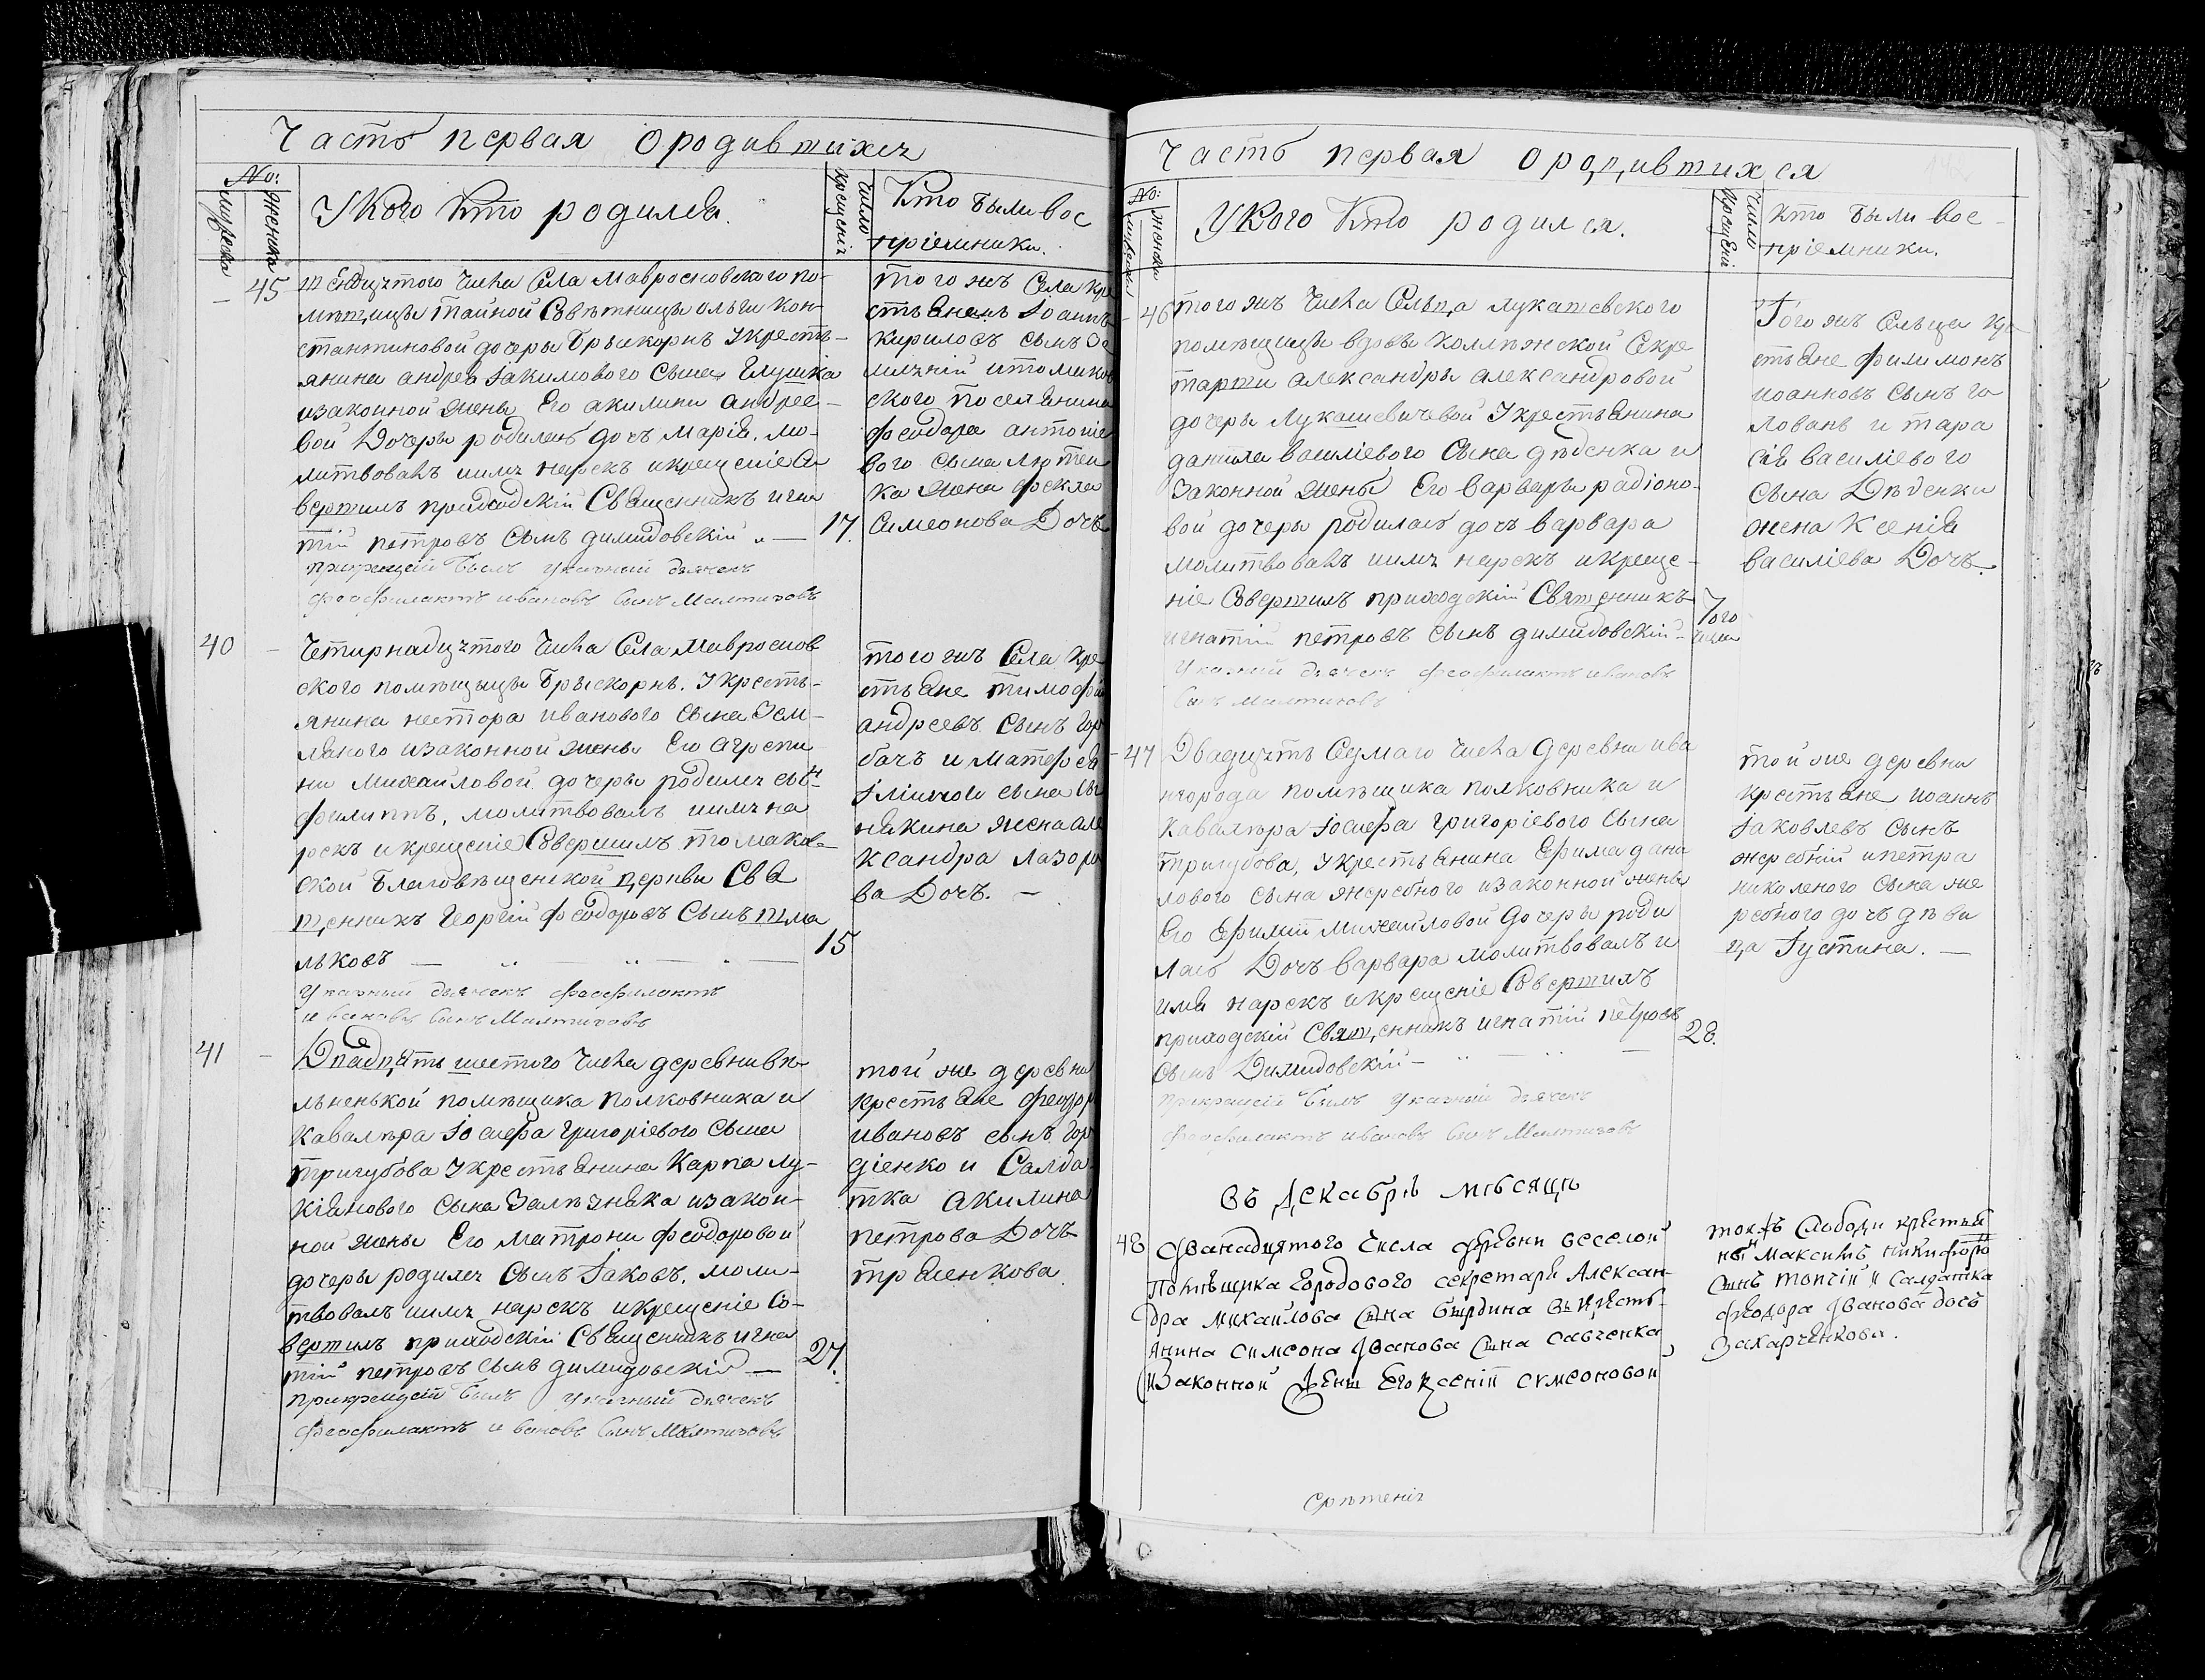 Часть первая о родившихся
No:
мужеска
женска
У кого кто родился.
число
крещения
Кто были вос
пріемники.
45
числа Села Мавроеновского по-
мѣщицы тайной Совѣтницы ольги кон-
стантиновой дочеры Брыскорнь У кресть-
янина андрея Іакимового Сына Глушка
изаконной жены Его акилини андрее-
вой Дочеры родилась дочъ Марія. мо-
литвовалъ имя нарекъ икрещеніе Со
вершилъ приходскій Священникъ игна
тій петровъ Сынъ димидовскій
17.
при крещеніи былъ указный дьячекъ
феофилактъ ивановъ Сынъ
того жъ Села кре
стьяне Іоаннъ
кириловъ сынъ
ского поселянина
феодора антоніе
вого сына
жена фекла
Симеонова Дочъ
40
Четирнадцятого Числа Села Мавроенов
ского помѣщицы Брыскорнь. У кресть-
янина нестора иванового Сына Зем-
ляного изаконной жены Его агрепи
ни Михайловой дочеры родился сынъ
филиппъ, молитвовалъ имя на
рекъ икрещеніе Совершилъ томаков-
ской благовѣщенской церкви Свя
щенникъ Георгій феодоровъ Сынъ шма
льковъ
15
Указный дьячекъ феофилактъ
ивановъ Сынъ
того жъ Села кре
стьяне тимофій
андреевъ сынъ гор
бачъ и
сына
жена але
ксандра лазоре
ва Дочъ.
41
Двадцять шестого Числа деревни ви-
льненькой помѣщика полковника и
кавалѣра Іосифа григоріевого Сына
тригубова У крестьянина карпа лу-
кіянового сына Залѣзняка изакон-
ной жены Его матрони феодоровой
дочеры родился Сынъ Іаковъ. моли-
твовалъ имя нарекъ икрещеніе Со-
вершилъ приходскій Священникъ игна
тій петровъ сынъ димидовскій
27.
при крещеніи былъ указный дьячекъ
феофилактъ ивановъ Сынъ
той же деревни
крестьяне феодоръ
ивановъ сынъ гор
діенко и Салда
тка акилина
петрова Дочъ
Часть первая о родившихся
No:
мужеска
женска
У кого кто родился.
число
крещеніи
кто были вос-
пріемники.
46
того жъ Числа Сельца лукашевского
помѣщицы вдовы коллѣжской Секре
тарши александры александровой
дочеры лукашевичевой У крестьянина
данила василіевого Сына дѣденка и
Законной жены Его варвары радіоно-
вой дочеры родилась дочъ варвара
молитвовалъ имя нарекъ икреще-
ніе Совершилъ приходскій Священникъ
игнатій петровъ сынъ димидовскій
Того
числа
Указный дьячекъ феофилактъ ивановъ
Сынъ
Того жъ Сельца кре-
стьяне филимонъ
иоанновъ сынъ го
ловань и тара
сія василіевого
сына Дѣденки
жена Ксенія
василіева Дочъ.
47
Двадцять Седмаго Числа деревни ива
нгорода помѣщика полковника и
кавалѣра Іосифа григоріевого Сына
тригубова, У крестьянина Ефима дани
лового сына жеребного изаконной жены
Его Ефиміи Михайловой дочеры роди
лась Дочъ варвара молитвовалъ и
имя нарекъ икрещеніе Совершилъ
приходскій Священникъ игнатій петровъ
Сынъ Димидовскій
28.
при крещеніи былъ указный дьячекъ
феофилактъ ивановъ Сынъ
той же деревни
крестьяне иоаннъ
Іаковлевъ сынъ
жеребній ипетра
николеного сына же
ребного дочъ дѣви
ца Іустина.
въ декабрѣ мѣсяцѣ
48
Дванадцятого числа деревни веселой
помѣщика городового секретаря Алексан-
дра михайлова сына бырдина въ кресть-
янина симеона Іванова сына савченка
изаконной жены Его ксеніи симеоновой
тояжъ слободи крестья
нинъ максимъ никифоро
сынъ и салдатка
феодора Іванова дочь
Захарченкова.
Срѣтенія